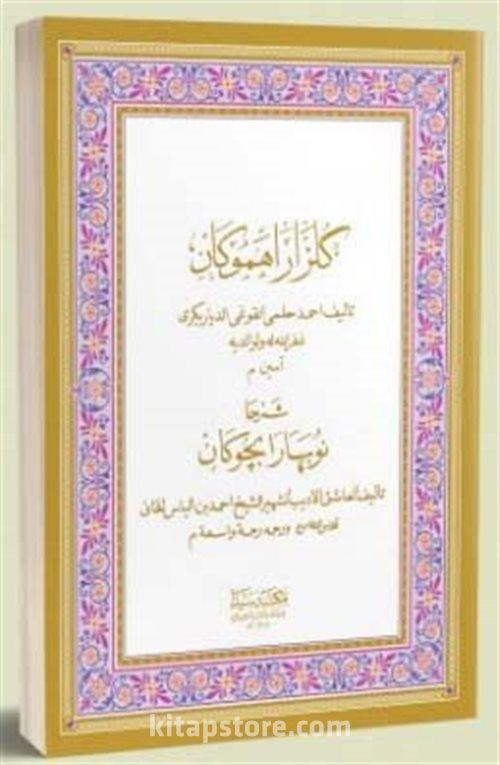 كلزارا هموكان
تأليف احمد حلمي القوغي الدياربكري
غفر الله له ولوالديه
آمين م
شرحا
نوبهارا بچوكان
تأليف العاشق الاديب الشهير الشيخ احمد بن الياس الخاني
ورحمه رحمة واسعة م
مكتبة سيدا
kitapstore.com